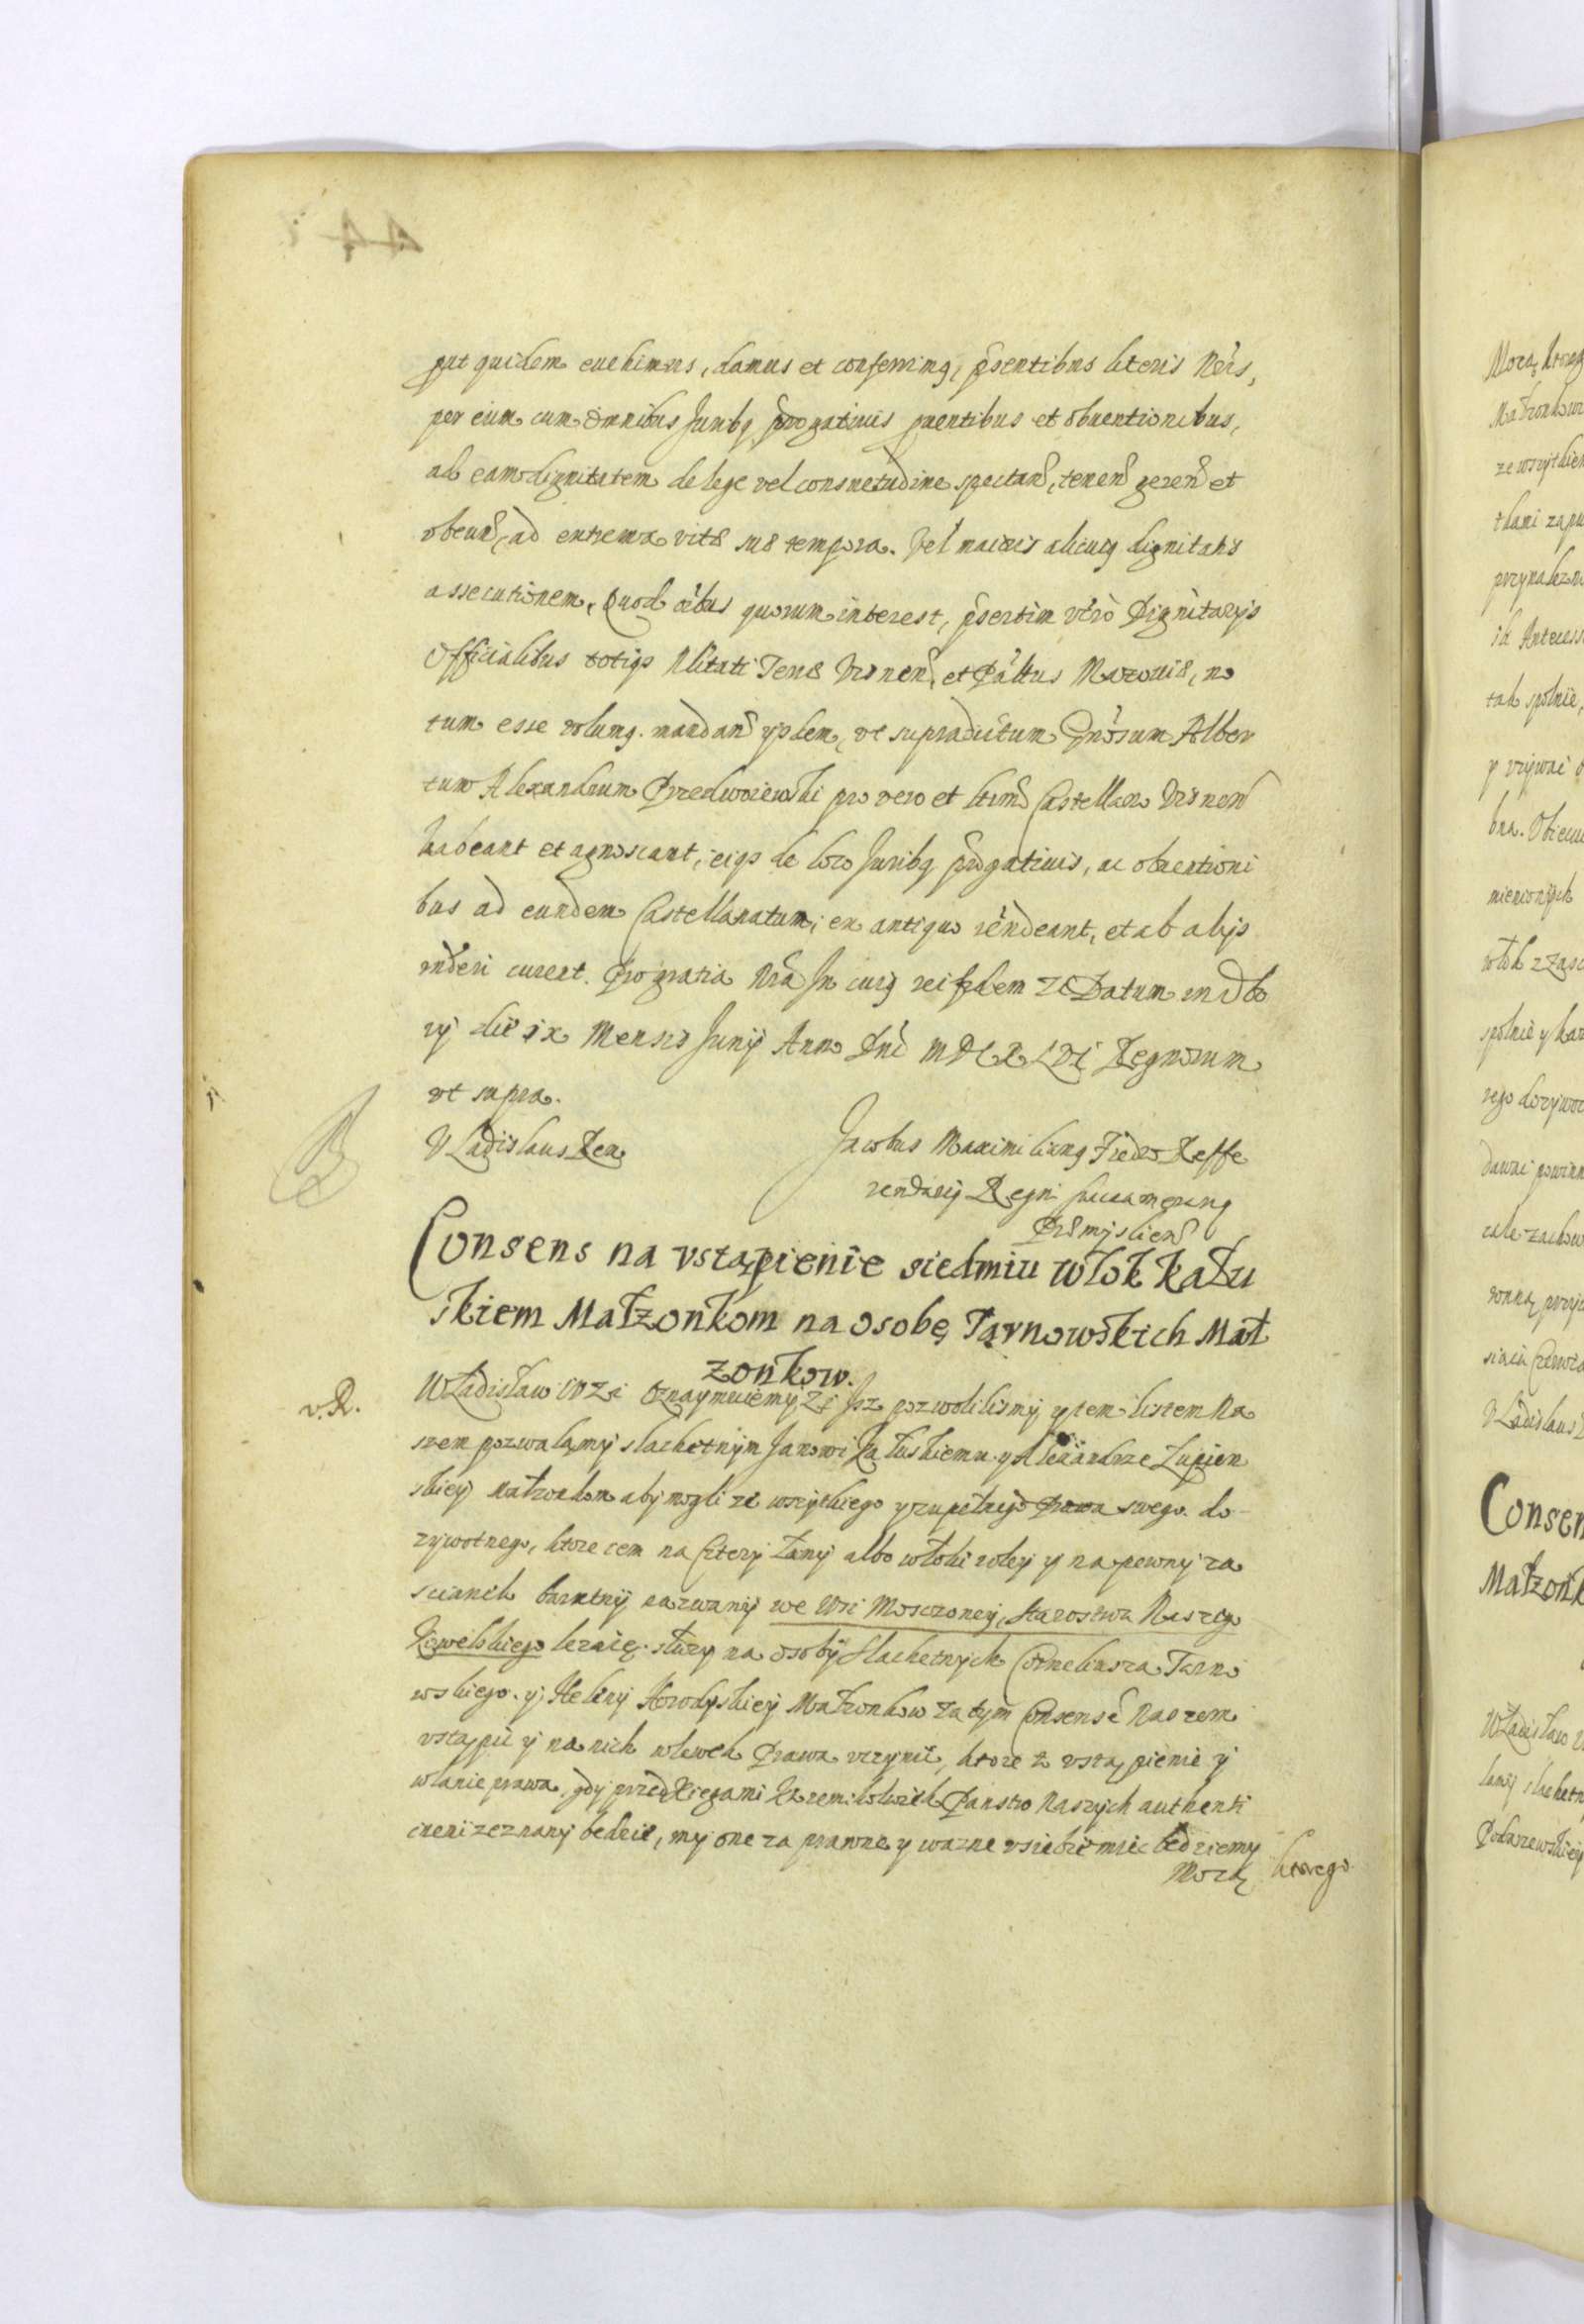 put quidem euehimus, damus et conferimus, psentibus literis Nris,
per eum cum omnibus Juribq progatiuis puentibus et obuentionibus,
ab eam dignitatem de lege vel consuetudine spectan, tenen geren et
obeun, ad extrema vitæ suæ tempora. Vel maioris alicuiq dignitatis
assecutionem, Quod oibus quorum interest, psertim vero Dignitarijs
Officialibus totiqs Nlitati Terræ Visnen, et Palttus Mazouiæ, no
tum esse volumq. mandan ijsdem, vt supradictum Gnosum Alber
tum Alexandrum Przedworiewski pro vero et ltimo Castellano Visnen
habeant et agnoscant, eiqs de loco Juribq progatiuis, ac obuentioni
bus ad eundem Castellanatum, ex antiquo rendeant, et ab alijs
rnderi curent. Pro gratia Nra In cuiq rei fidem Datum in
ij die ix Mensis Junij Anno Dni MDCXLVI Regnorum
vt supra.
Vladislaus Rex
Jacobus Maximilianq Fredro Reffe
rendarij Regni Succamerarq
Præmysliens
Consens na vstąpienie siedmiu włok Kału
skiem Małzonkom na osobę Tarnowskich Mał
zonkow.
v.R.
Władisław IV Oznaymuiemy, Isz pozwolilismy y tem listem Na
szem pozwalamy slachetnym Janowi Kałuskiemu y Alexandrze Łupien
skiey Małzonkom aby mogli ze wszytkiego y zupełnego Prawa swego do-
zywotnego, ktore iem na Cztery Łany albo włoki roley y na pewny za
scianek nazwany we Wsi Mosczoney, Starostwa Naszego
Kowelskiego lezące słuzy na osoby Slachetnych Corneliusza Tarno
wskiego y Heleny Horodyskiey Małzonkow za tym Consense Naszem
vstąpic y na nich wlewek Prawa vczynic, ktore to vstąpienie y
wlanie prawa, gdy przed Xięgami Ktoremikolwiek Panstw Naszych authenti
cneni zeznany będzie, my one za prawne y wazne v siebie miec będziemy
Mocą ktorego